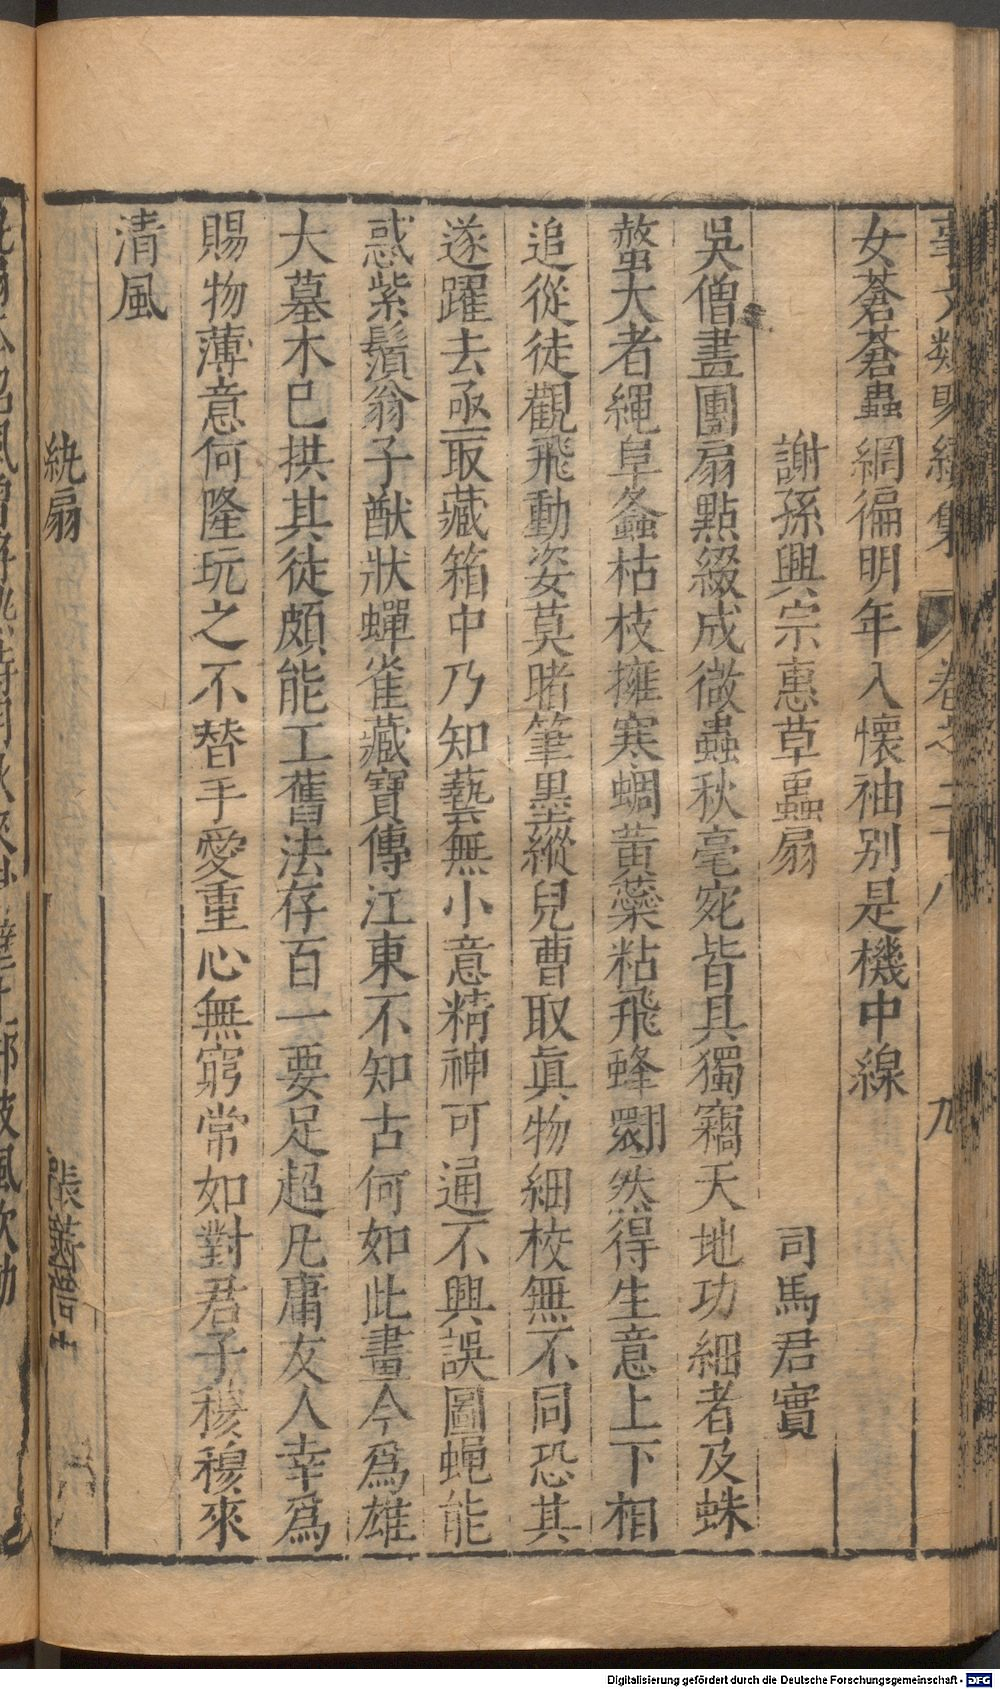 事文類聚續集 卷之二十八 九
女蒼蒼蟲網徧明年入懷袖别是機中線
謝孫興宗惠草蟲扇 司馬君實
吳僧畫團扇點綴成微蟲秋毫宛皆具獨竊天地功細者及蛛
蝥大者繩阜螽枯枝擁寒蜩黄蘂粘飛蜂翾然得生意上下相
追從徒觀飛動姿莫睹筆墨縱兒曹取真物細校無不同恐其
遂躍去亟取藏箱中乃知藝無小意精神可通不興誤圖蝿能
惑紫鬚翁子猷狀蟬雀藏寶傳江東不知古何如此畫今爲雄
大墓木已拱其徒頗能工舊法存百一要足超凡庸友人幸爲
賜物薄意何隆玩之不替手愛重心無窮常如對君子穆穆來
清風
紈扇 張